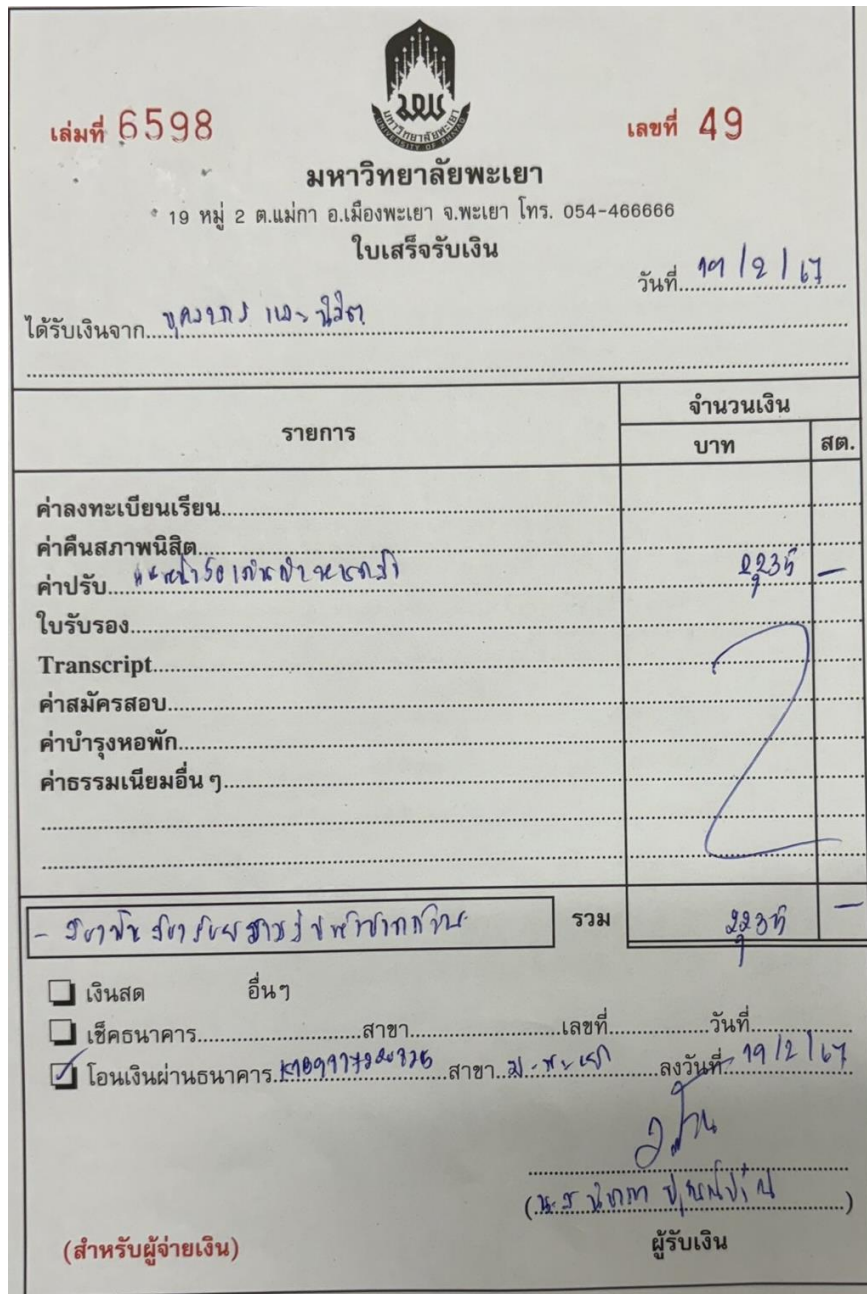 มหาวิทยาลัยพะเยา
UNIVERSITY OF PHAYAO
เล่มที่ 6598
เลขที่ 49
มหาวิทยาลัยพะเยา
19 หมู่ 2 ต.แม่กา อ.เมืองพะเยา จ.พะเยา โทร. 054-466666
ใบเสร็จรับเงิน
วันที่ 19/2/67
ได้รับเงินจาก บุคลากร และ นิสิต
รายการ จำนวนเงิน
บาท สต.
ค่าลงทะเบียนเรียน
ค่าคืนสภาพนิสิต
ค่าปรับ 2,235 -
ใบรับรอง
Transcript
ค่าสมัครสอบ
ค่าบำรุงหอพัก
ค่าธรรมเนียมอื่น ๆ
รวม 2,235 -
เงินสด อื่นๆ
เช็คธนาคาร สาขา เลขที่ วันที่
โอนเงินผ่านธนาคาร สาขา ม.พะเยา ลงวันที่ 19/2/67
(น.ส.)
(สำหรับผู้จ่ายเงิน) ผู้รับเงิน